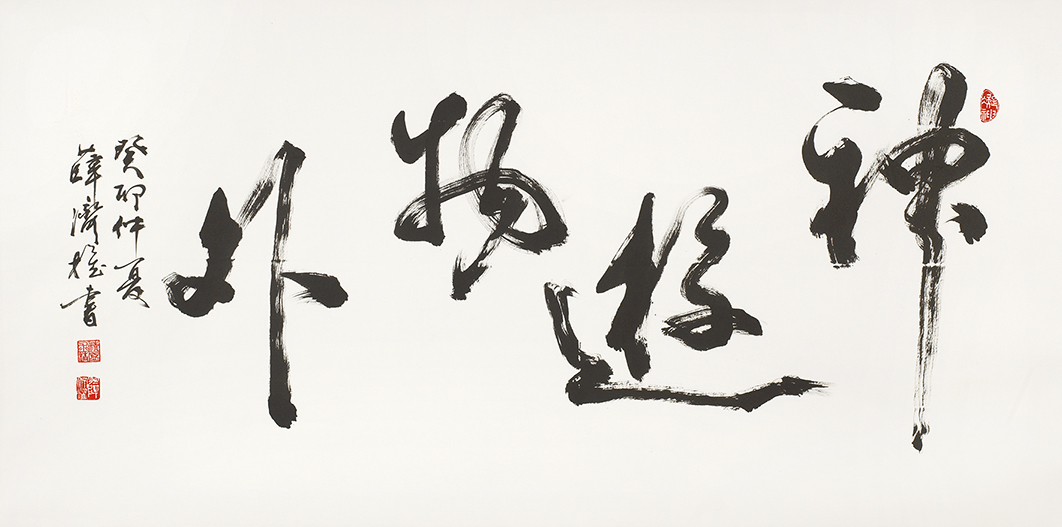 神遊物外
癸卯仲夏
薛濟槐書